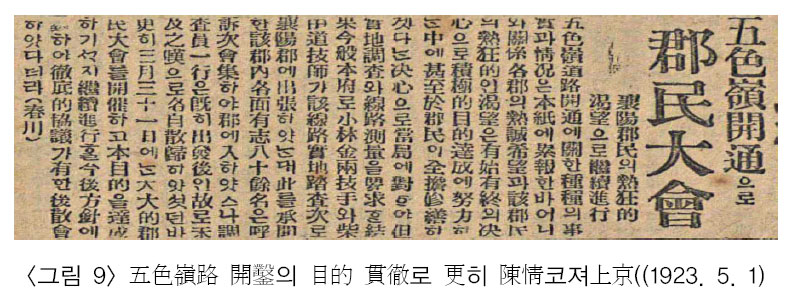 五色嶺開通으로
郡民大會
襄陽郡民의熱狂的
渴望으로繼續進行
五色嶺道路開通에關한種種의事
實과情况은本紙에累報한바어니
와關係各郡의熱誠希望과該郡民
의熱狂的인渴望은有始有終의决
心으로積極的目的達成에努力하
는中에甚至於郡民이全擔修繕하
겟다는决心으로當局에對하야但
實地調査와線路測量을要求한結
果今般本府로小林金兩技手와柴
田道技師가該線路實地踏査次로
襄陽郡에出張하얏는대此를承聞
한該郡內各面有志八十餘名은呼
訴次會集하야郡에入하얏스나調
査員一行은旣히出發後인故로未
及之嘆으로各自散歸하얏던바
更히三月三十一日에는大大的郡
民大會를開催하고本目的을達成
하기지繼續進行今後方針에
하야徹底的協議가有한後散會
하얏다더라(春川)
〈그림 9〉 五色嶺路 開鑿의 目的 貫徹로 更히 陳情코져上京((1923. 5. 1)